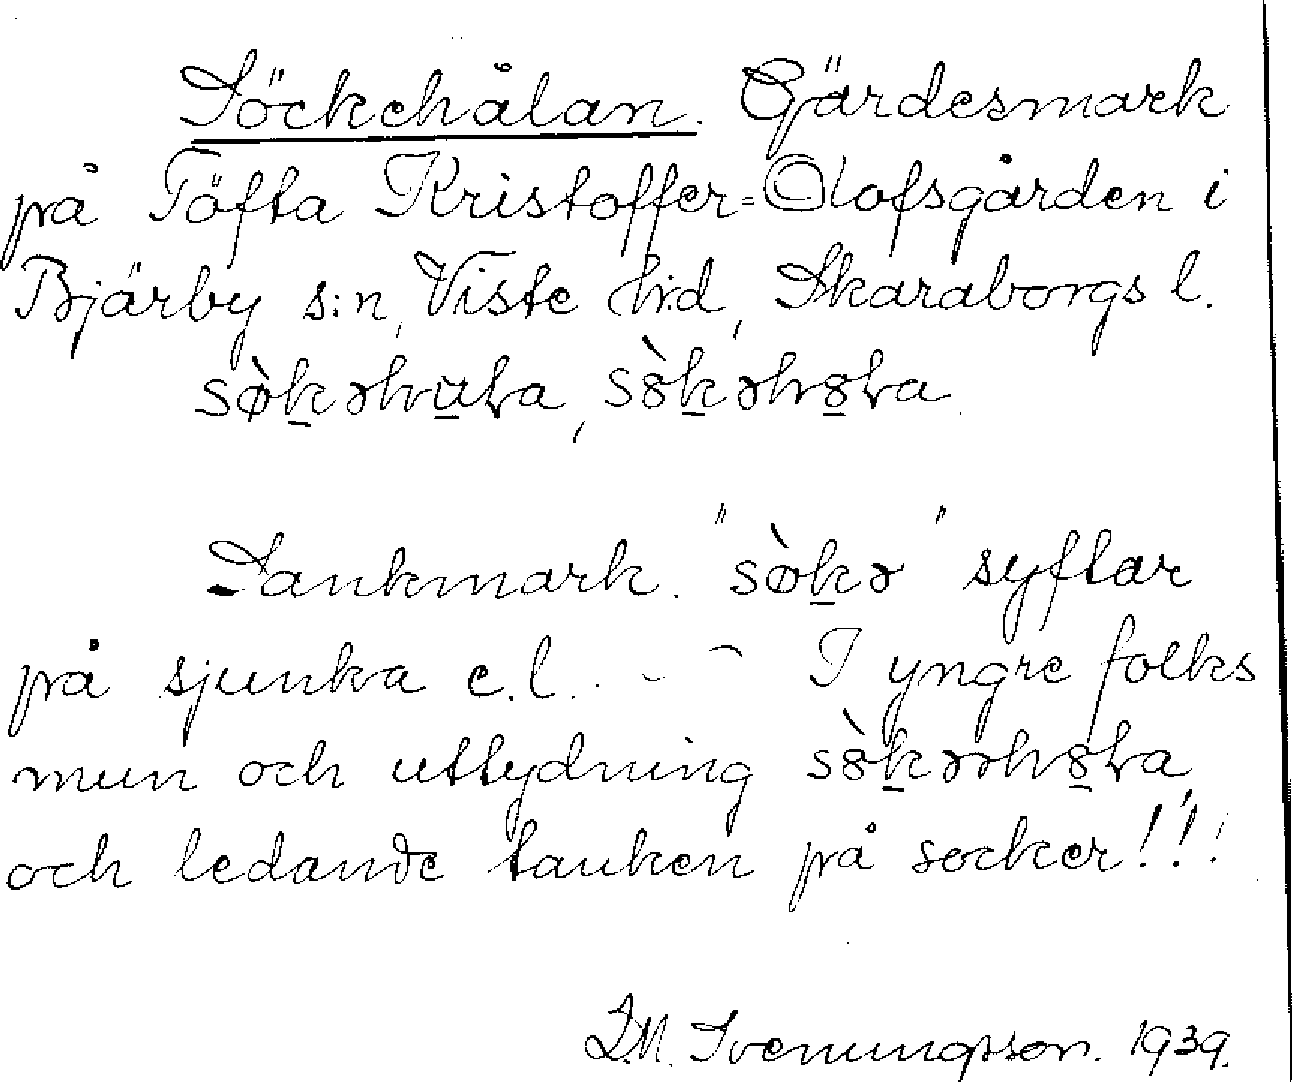 Söckehålan. Gärdesmark
på Töfta Kristoffer=Olofsgården i
Bjärby s:n, Viste hrd, Skaraborgs l.
Sankmark. " " syftar
på sjunka e.l. - I yngre folks
mun och uttydning
och ledande tanken på socker!!!
Svenungsson. 1939.